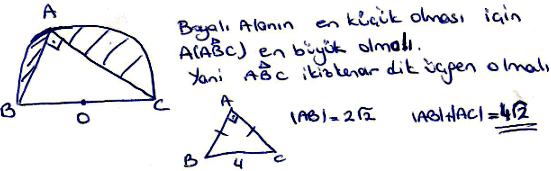 A
B
O
C
Boyalı Alanın en küçük olması için
A(ABC) en büyük olmalı.
Yani ABC ikizkenar dik üçgen olmalı
A
B
4
C
|AB|=2√2
|AB|+|AC|=4√2